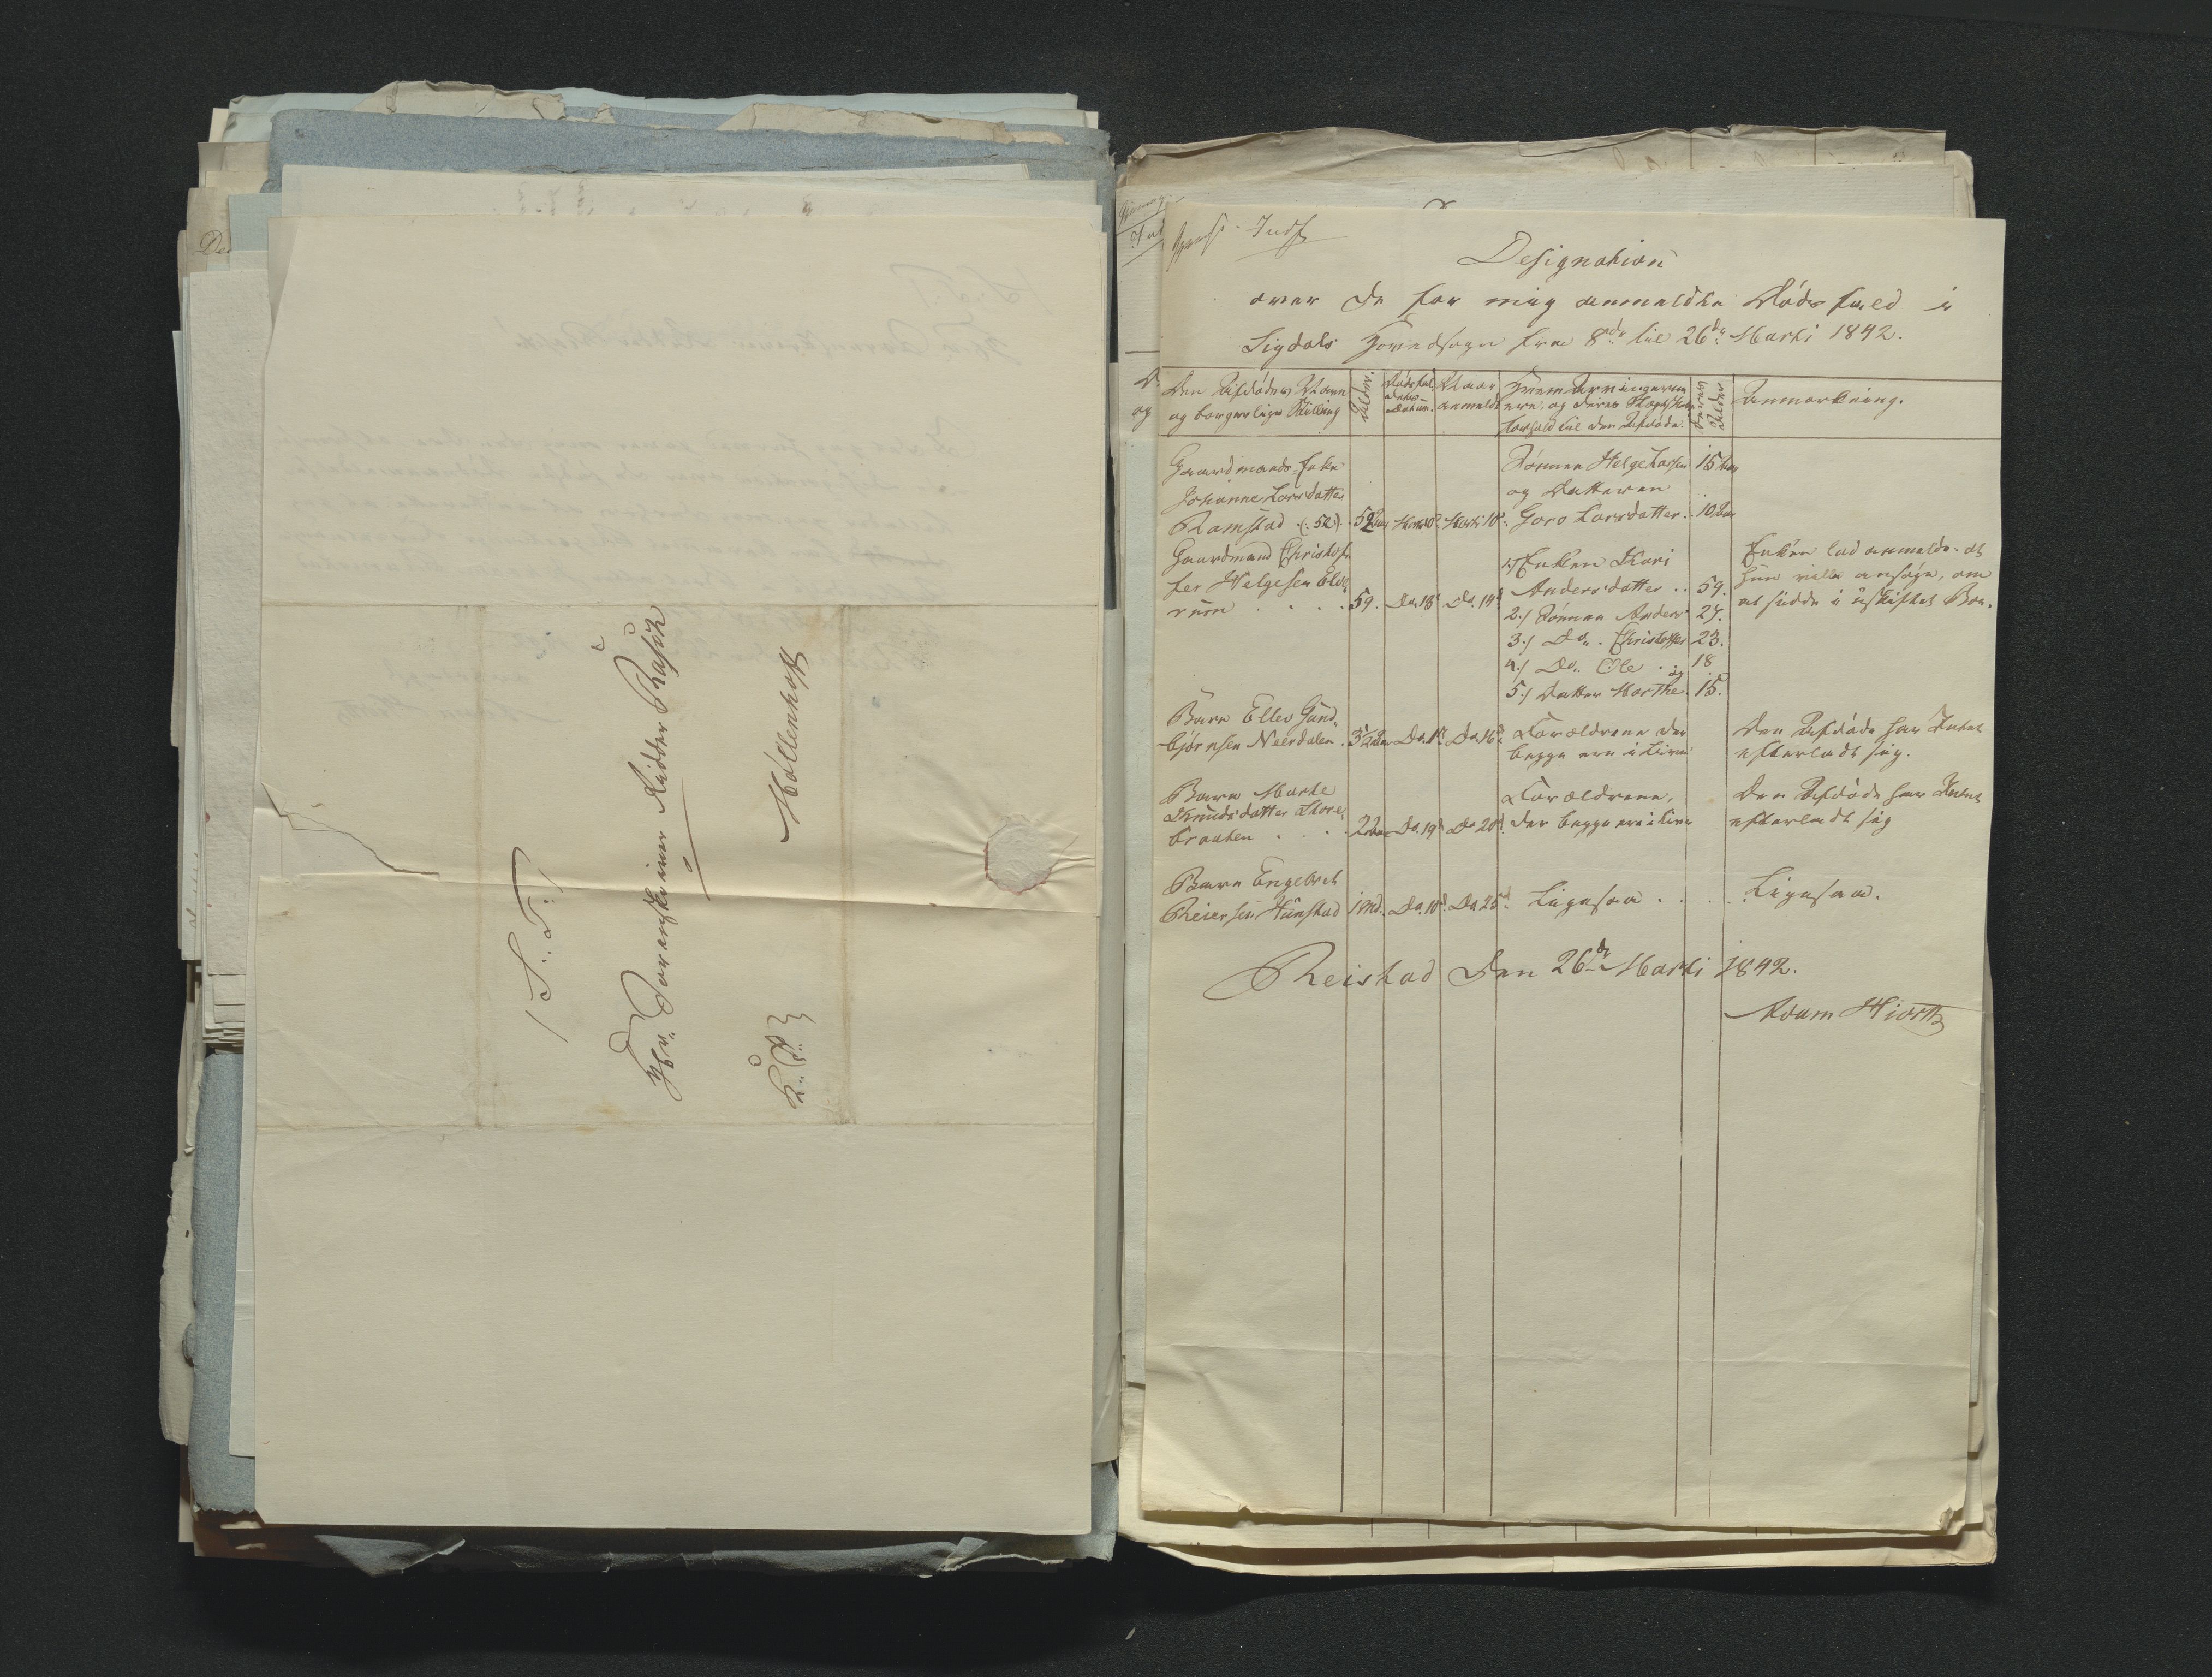 /S. T./
Hr. Sorenskriver Ridder Rasch
i
Møllenhoff
K. T.
Designation
over de for mig anmeldte Dødsfald i
Sigdals Hovedsogn fra 8de til 26de Marti 1842.
Den Afdødes Navn
og borgerlige Stilling
Alder.
Dødsfal-
dets
Datum.
Naar
anmeldt
Hvem Arvingerne
ere, og deres Slægtskabs
forhold til den Afdøde.
Deres
Alder
Anmærkning.
Gaardmands-Enke
Johanne Larsdatter
Ramstad (: 52 :) 52 Aar Marti 10de Marti 10de
Sønnen Helge Larsen 15 Aar
og Datteren
Goro Larsdatter. 10 Aar
Gaardmand Christof-
fer Helgesen Eld-
rum . . . . 59. Do. 13de Do. 14de
1./ Enken Kari
Andersdatter . . 59.
2./ Sønnen Anders 27.
3./ Do. Christoffer 23.
4./ Do. Ole . og 18
5./ Datter Marthe. 15.
Enken lod anmelde, at
hun ville ansøge, om
at sidde i uskiftet Boe.
Barn Ellev Gund-
bjørnsen Neerdalen . 3½ Aar Do. 1ste Do. 16de Forældrene der
begge ere i Live
Den Afdøde har Intet
efterladt sig.
Barn Marte
Knudsdatter Skore-
braaten . . . . 2 Aar Do. 19de Do 20de
Forældrene,
der begge ere i Live
Den Afdøde har Intet
efterladt sig
Barn Engebret
Reiersen Hunstad 1 Md. Do. 10de Do 25de Ligesaa . . . . Ligesaa.
Reistad den 26de Marti 1842.
Adam Hiorth